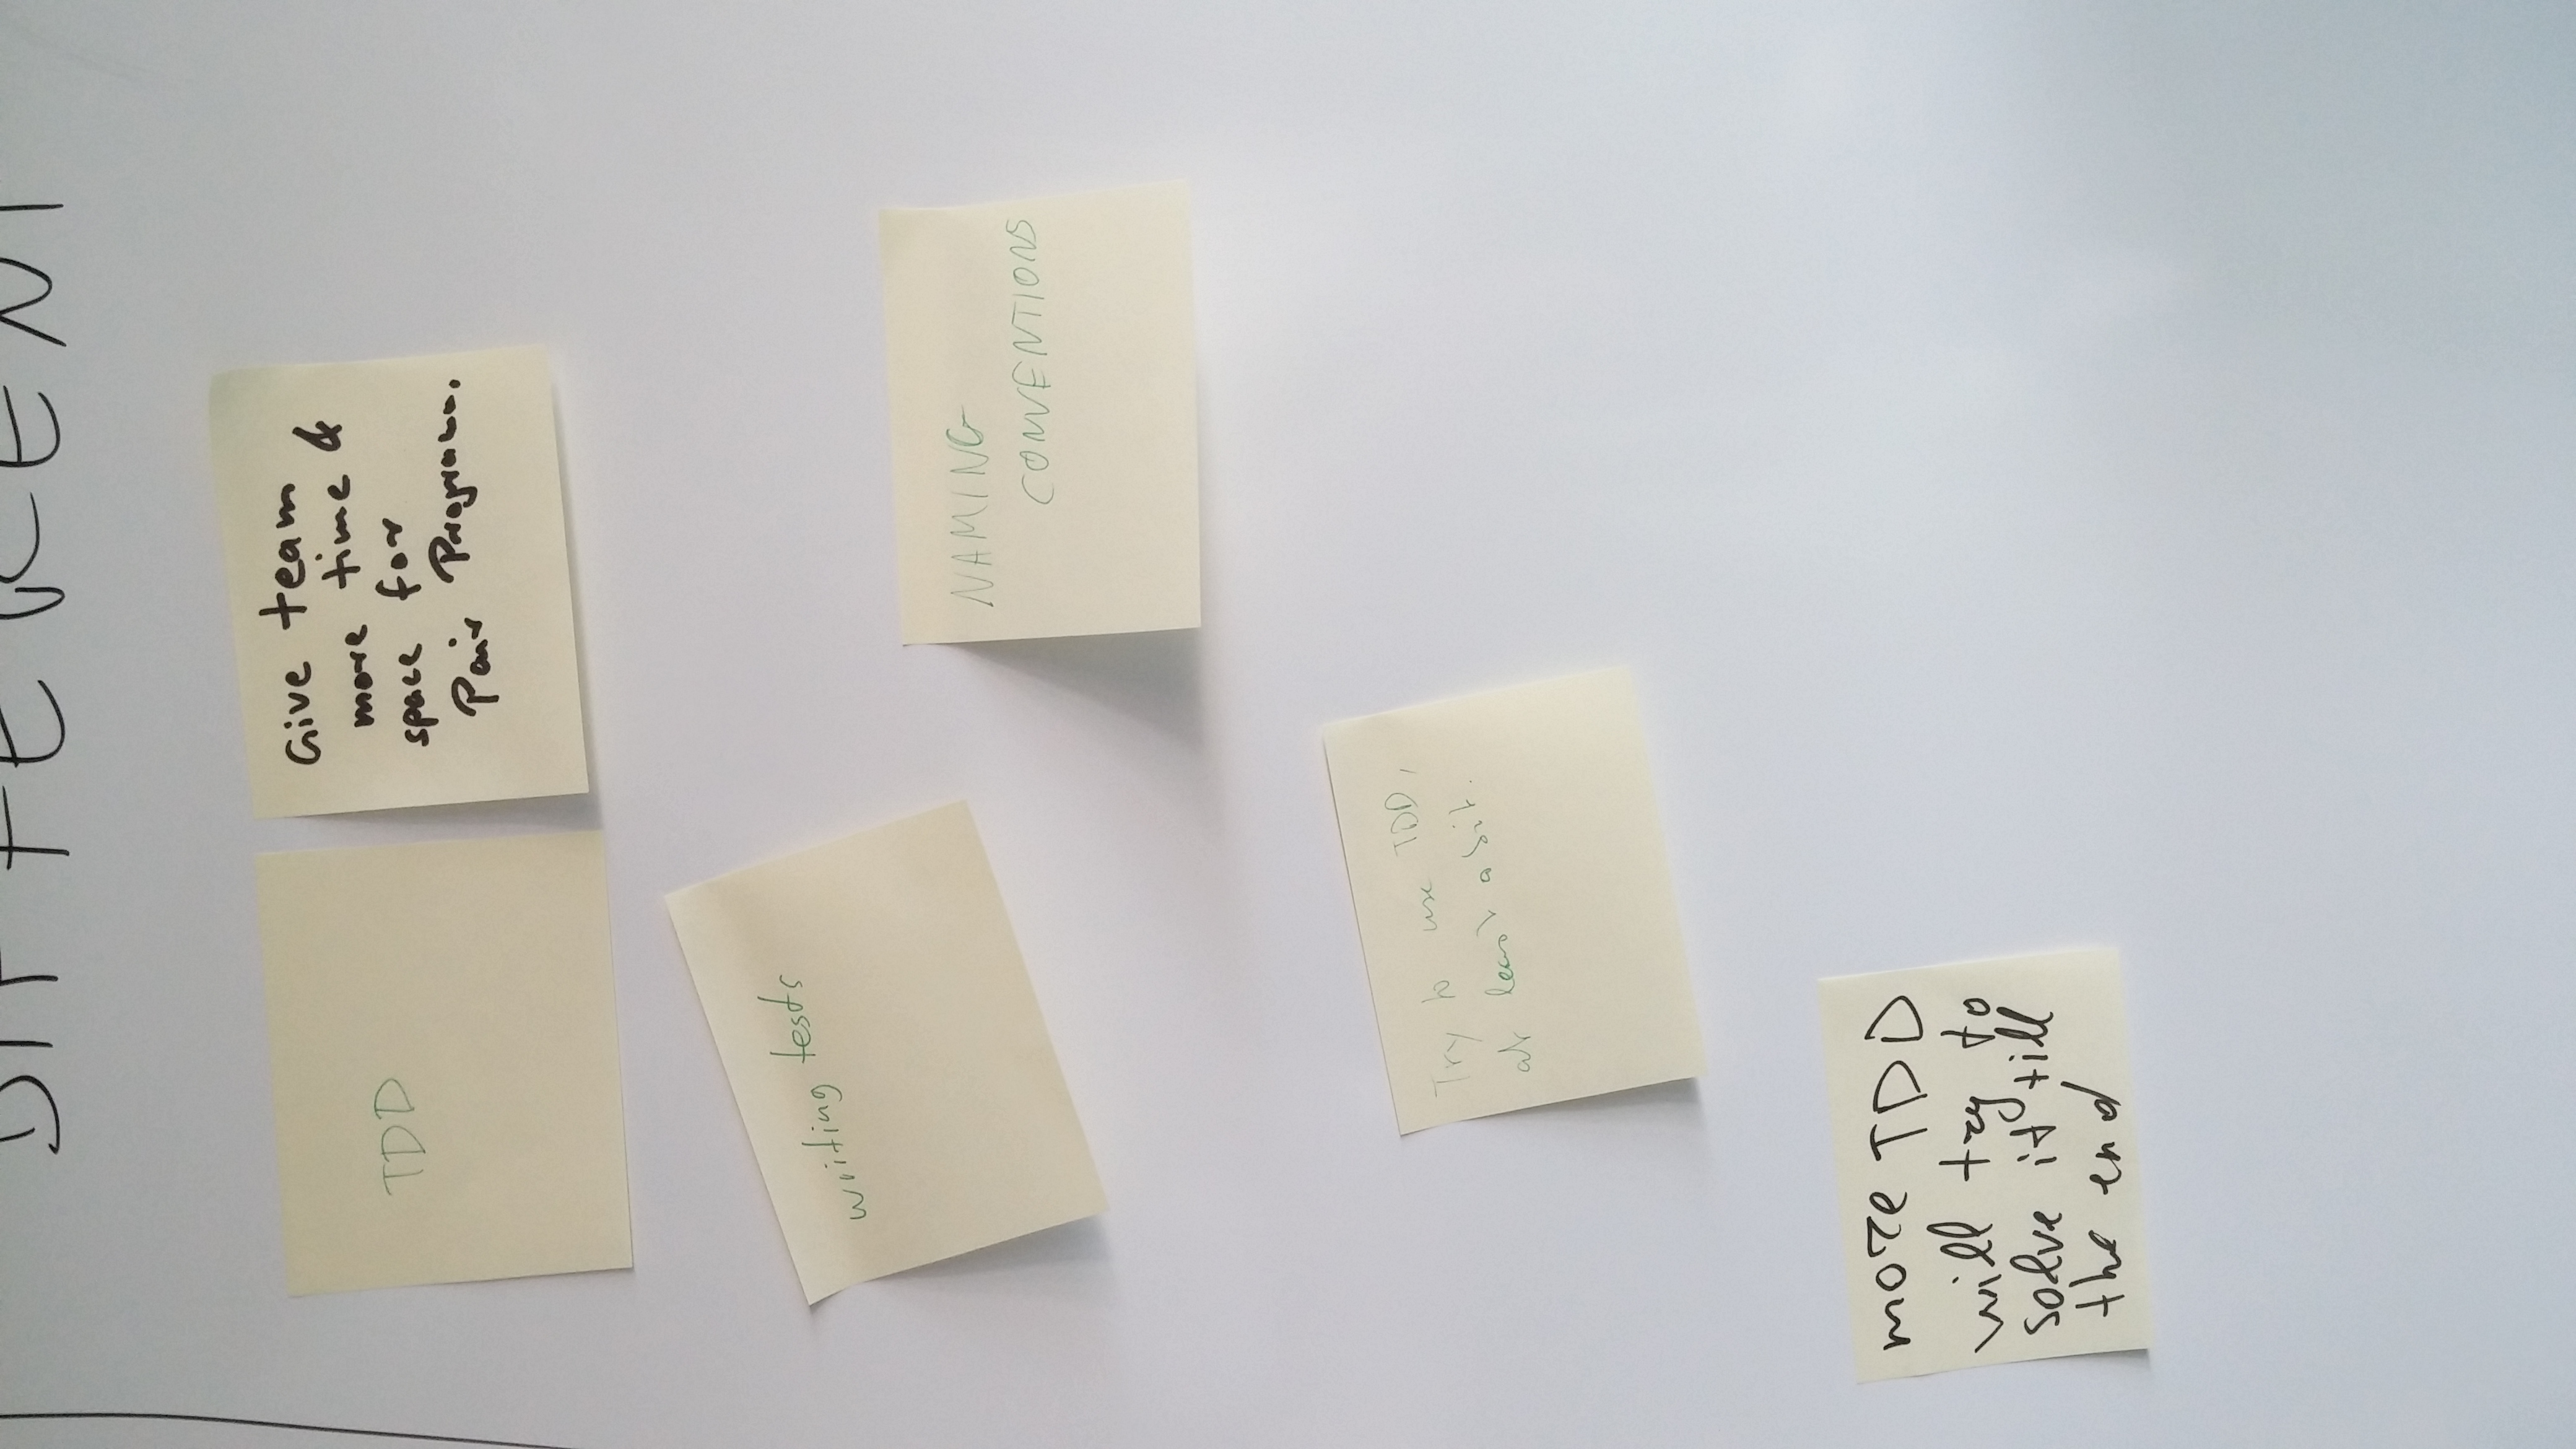 DIFFERENT
TDD
Give team
more time &
space for
Pair Programm.
writing tests
NAMING
CONVENTIONS
Try to use TDD,
at least a bit.
more TDD
will try to
solve it till
the end